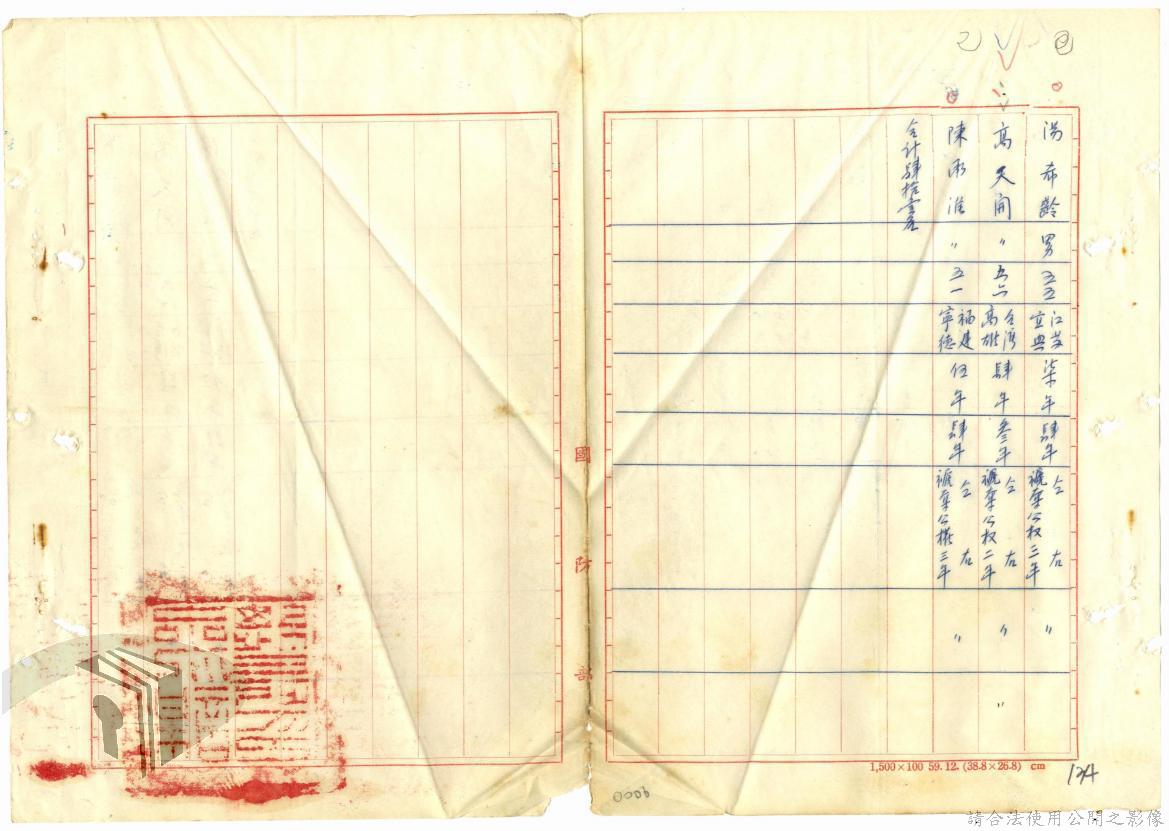 湯希齡 男 五五 江苏宜興 柒年 肆年 仝右 褫奪公权三年 〃
高天開 〃 五六 台湾高雄 肆年 叁年 仝右 褫奪公权二年 〃 〃
陳 淮 〃 五一 福建寧德 伍年 肆年 仝右 褫奪公權三年 〃
合计肆拾壹名
國防部
1,500×100 59. 12. (38.8×26.8) cm
134
0006
請合法使用公開之影像